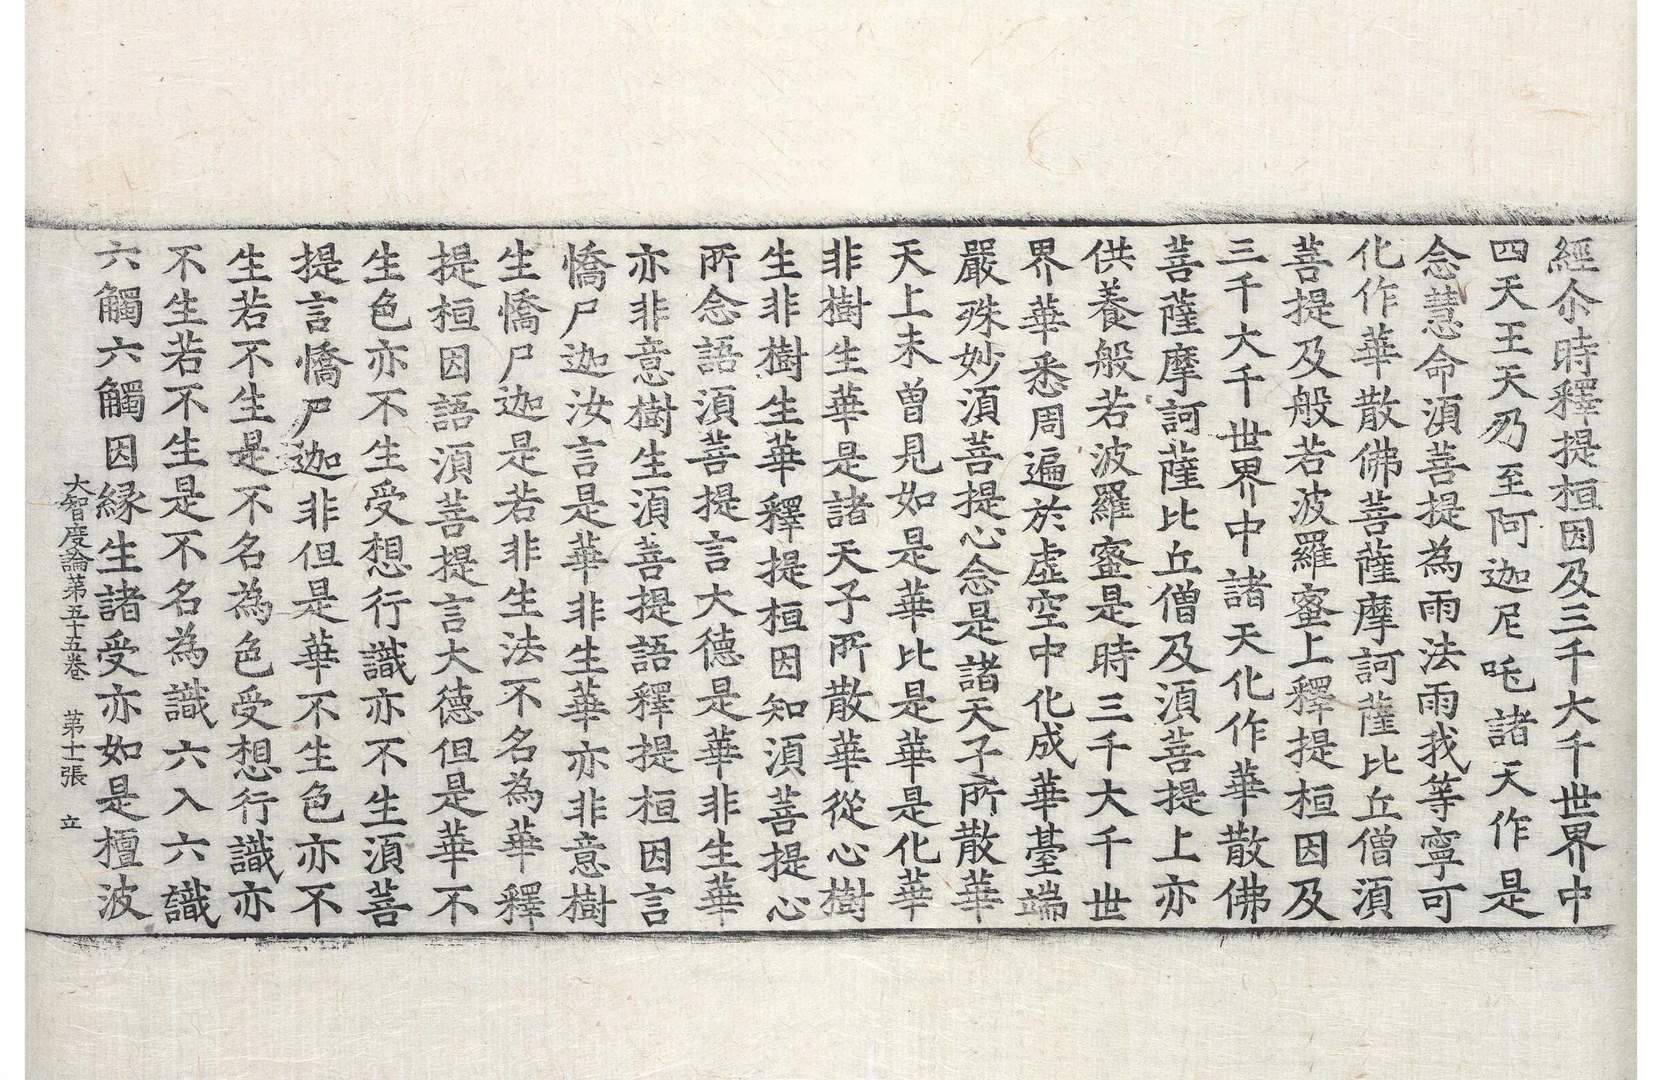 經尒時釋提桓因及三千大千世界中
四天王天乃至阿迦尼吒諸天作是
念慧命湏菩提為雨法雨我等寧可
化作華散佛菩薩摩訶薩比丘僧湏
菩提及般若波羅蜜上釋提桓因及
三千大千世界中諸天化作華散佛
菩薩摩訶薩比丘僧及湏菩提上亦
供養般若波羅蜜是時三千大千世
界華悉周遍於虛空中化成華臺端
嚴殊妙湏菩提心念是諸天子所散華
天上未曾見如是華比是華是化華
非樹生華是諸天子所散華從心樹
生非樹生華釋提桓因知湏菩提心
所念語湏菩提言大德是華非生華
亦非意樹生湏菩提語釋提桓因言
憍尸迦汝言是華非生華亦非意樹
生憍尸迦是若非生法不名為華釋
提桓因語湏菩提言大德但是華不
生色亦不生受想行識亦不生湏菩
提言憍尸迦非但是華不生色亦不
生若不生是不名為色受想行識亦
不生若不生是不名為識六入六識
六觸六觸因緣生諸受亦如是檀波
大智度論第五十五卷　第十一張　立